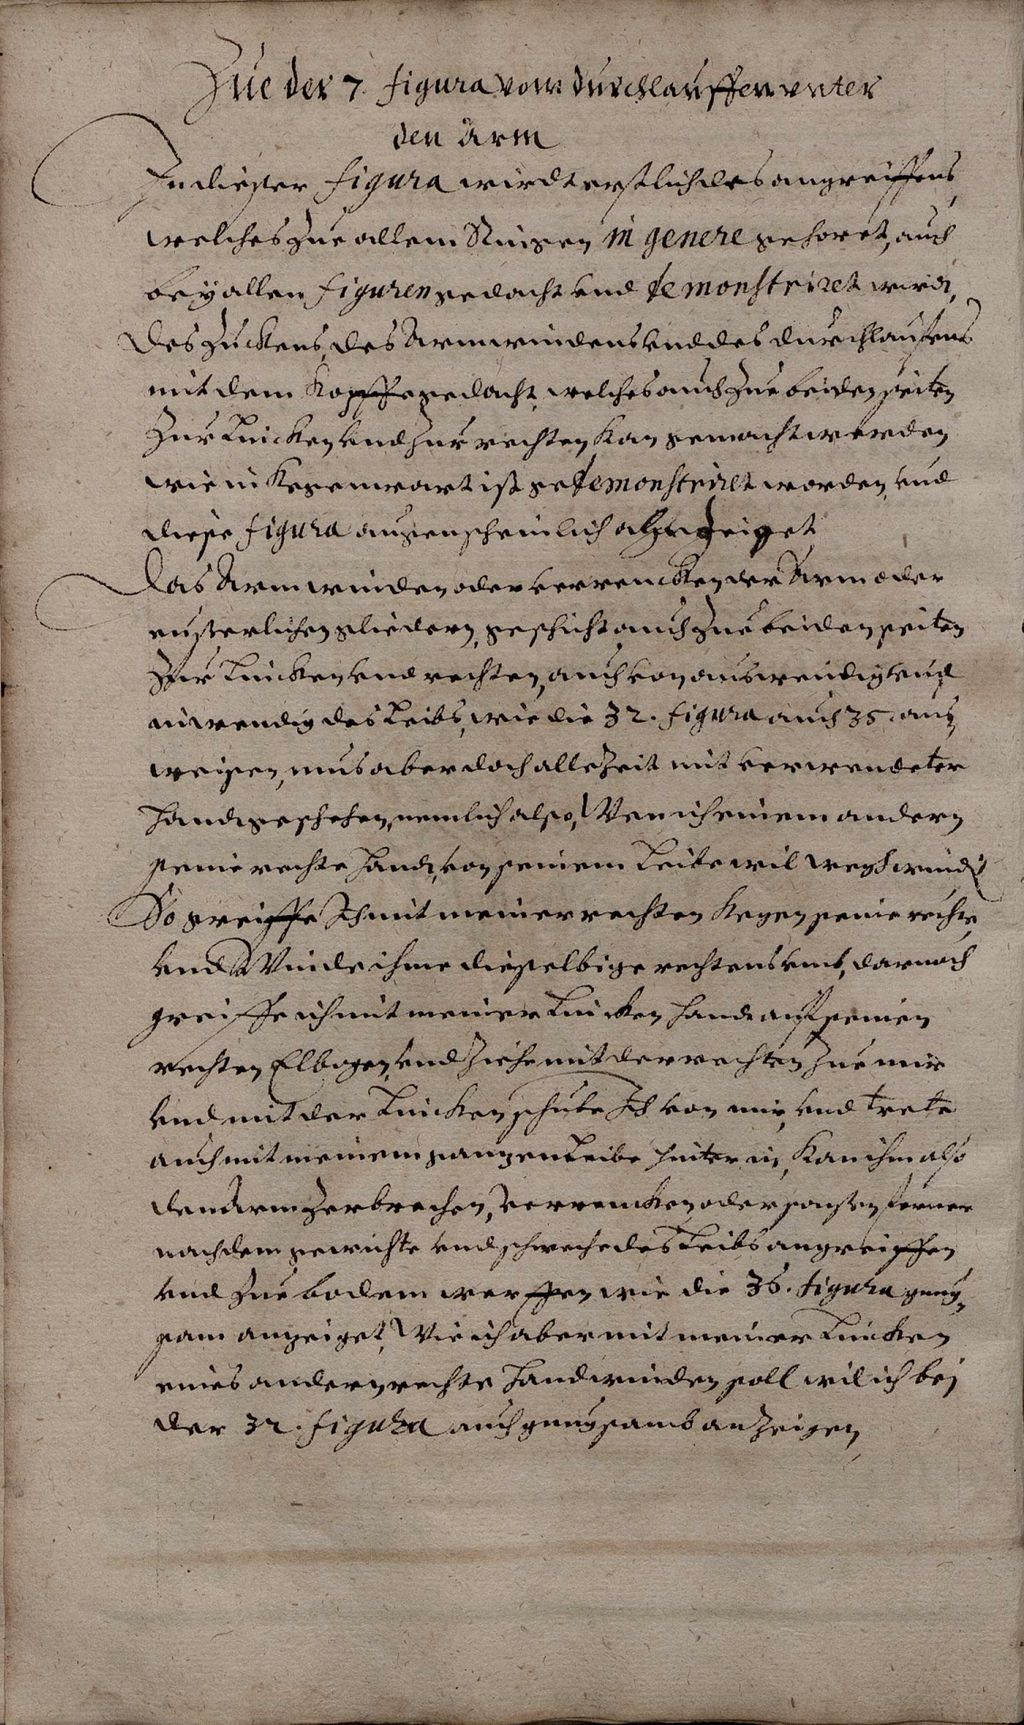 Zue der 7. figura vom durchlauffen vnter
den arm
In dieser figura wirdt erstlich des angreiffens,
welches zue allem Ringen in genere gehoret, auch
bey allen figuren gedacht vnd demonstriret wird,
des Zuckens, des Armwindens vnd des durchlaufens
mit dem Kopffe gedacht, welches auch zue beiden seiten
zur Lincken vnd zur rechten kan gemacht werden
wie in kegenwart ist gedemonstriret worden, vnd
diese figura augenscheinlich anzeiget
Das Armwinden oder verrencken der Arm oder
eusserlichen gliedern, geschicht auch zue beiden seiten
zur Lincken vnd rechten, auch von auswendig vnd
inwendig des Leibs, wie die 32. figura auch 35 aus
weisen, mus aber doch allezeit mit verwendeter
Handt geschehen, nemlich also, Wen ich einem andern
seine rechte Handt, von seinem Leibe wil wegk winden
So greiffe Ich mit meiner rechten kegen seine rechte
vnd Winde ihme dieselbige rechtens vmb, darnach
greiffe ich mit meiner Lincken Handt an seinen
rechten Elbogen, vnd ziehe mit der rechten zue mir
vnd mit der Lincken schube Ich von mir, vnd trete
auch mit meinem gantzen Leibe hinter in, kan ihm also
den Arm zerbrechen, verrencken oder sonsten ferner
nach dem gewichte vnd schweche des Leibs angreiffen
vnd zue bodem werffen wie die 36. figura gnug
sam anzeiget, Wie ich aber mit meiner Lincken
eines andern rechte Handt winden soll wil ich bej
der 32. figura auch gnugsamb anzeigen